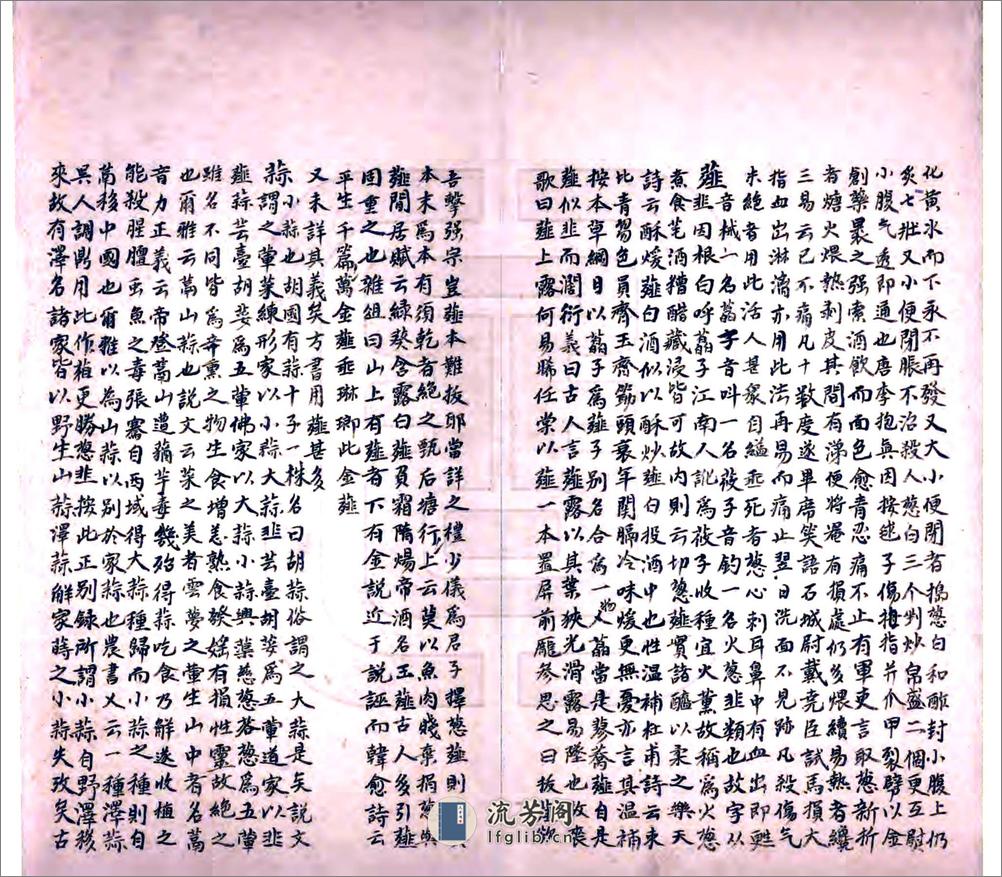 化黄水而下永不再發又大小便閉者搗葱白和酢封小腹上仍
灸七壯又小便閉脹不治殺人葱白三个剉炒帛盛二個更互熨
小腹气透即通也唐李抱真因按毬子傷拇指并爪甲裂劈以金
創藥裹之强索酒飲而面色愈青忍痛不止有軍吏言取葱新折
者煻火煨熱剥皮其間有涕便將罨有損處仍多煨續易熱者纔
三易云已不痛凡十數度遂畢席笑語石城尉戴堯臣試馬損大
指血出淋漓亦用此法再易而痛止翌日洗面不見跡凡殺傷气
未絶者用此活人甚衆自縊垂死者葱心刺耳鼻中有血出即甦
薤音械一名䪥子音叫一名莜子音釣一名火葱韭類也故字从
韭因根白呼䪥子江南人訛爲莜子收種宜火薰故稱爲火葱
煮食芼酒糟醋藏浸皆可故内則云切葱薤實諸醯以柔之樂天
詩云酥煖薤白酒似以酥炒薤白投酒中也性温補杜甫詩云束
比青芻色員齊玉筯頭衰年関膈冷味煖更無憂亦言其温補
按本草綱目以䪥子爲薤子別名合爲一物人䪥當是藠蕎薤自是
薤似韭而濶衍義曰古人言薤露以其葉狹光滑露易墜也故喪
歌曰薤上露何易晞任棠以薤一本置屏前龐參思之曰拔欲
吾擊强宗豈薤本難拔耶當詳之禮少儀爲君子擇葱薤則
本末爲本有須乾者絶之甄后塘行上云莫以魚肉賤棄捐葱與
薤閒居賦云緑葵含露白薤負霜隋煬帝酒名玉薤古人多引薤
因重之也雜俎曰山上有薤者下有金説近于説誣而韓愈詩云
平生千篇萬金薤垂琳瑯此金薤
又未詳其義矣方書用薤甚多
蒜小蒜也胡國有蒜十子一株名曰胡蒜俗謂之大蒜是矣説文
蒜謂之葷菜練形家以小蒜大蒜韭芸臺胡荽爲五葷道家以韭
薤蒜芸臺胡荽爲五葷佛家以大蒜小蒜興蕖慈葱茖葱爲五葷
雖名不同皆爲辛熏之物生食增恚熟食發婬有損性靈故絶之
也爾雅云蒚山蒜也説文云菜之美者雲夢之葷生山中者名蒚
音力正義云帝登蒚山遭蕕芋毒幾殆得蒜吃食乃解遂收植之
能殺腥膻虫魚之毒張騫自西域得大蒜種歸而小蒜之種則自
蒚移中國也爾雅以為山蒜以別於家蒜也農書又云一種澤蒜
異人調鼎用此作柤更勝葱韭按此正別録所謂小蒜自野澤移
來故有澤名諸家皆以野生山蒜澤蒜解家蒔之小蒜失攷矣古
流芳阁
lfglib.cn